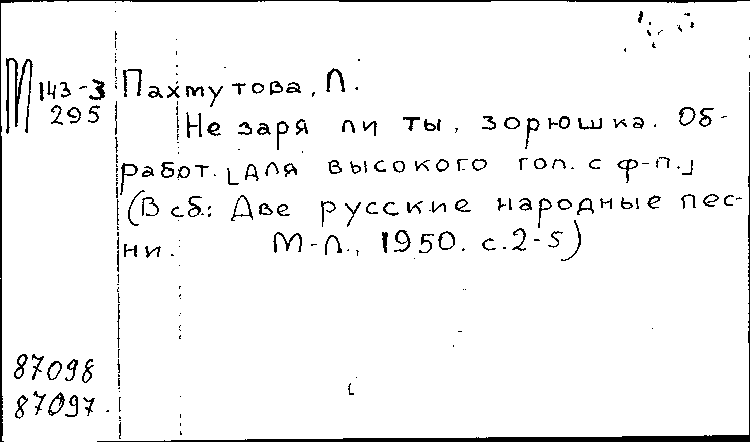 М 143-3 Пахмутова, Л.
295 Не заря ли ты, зорюшка. Об-
работ. [для высокого гол. с ф-п.]
(В сб.: Две русские народные пес-
ни. М-Л., 1950. с.2-5)
87098
87097.